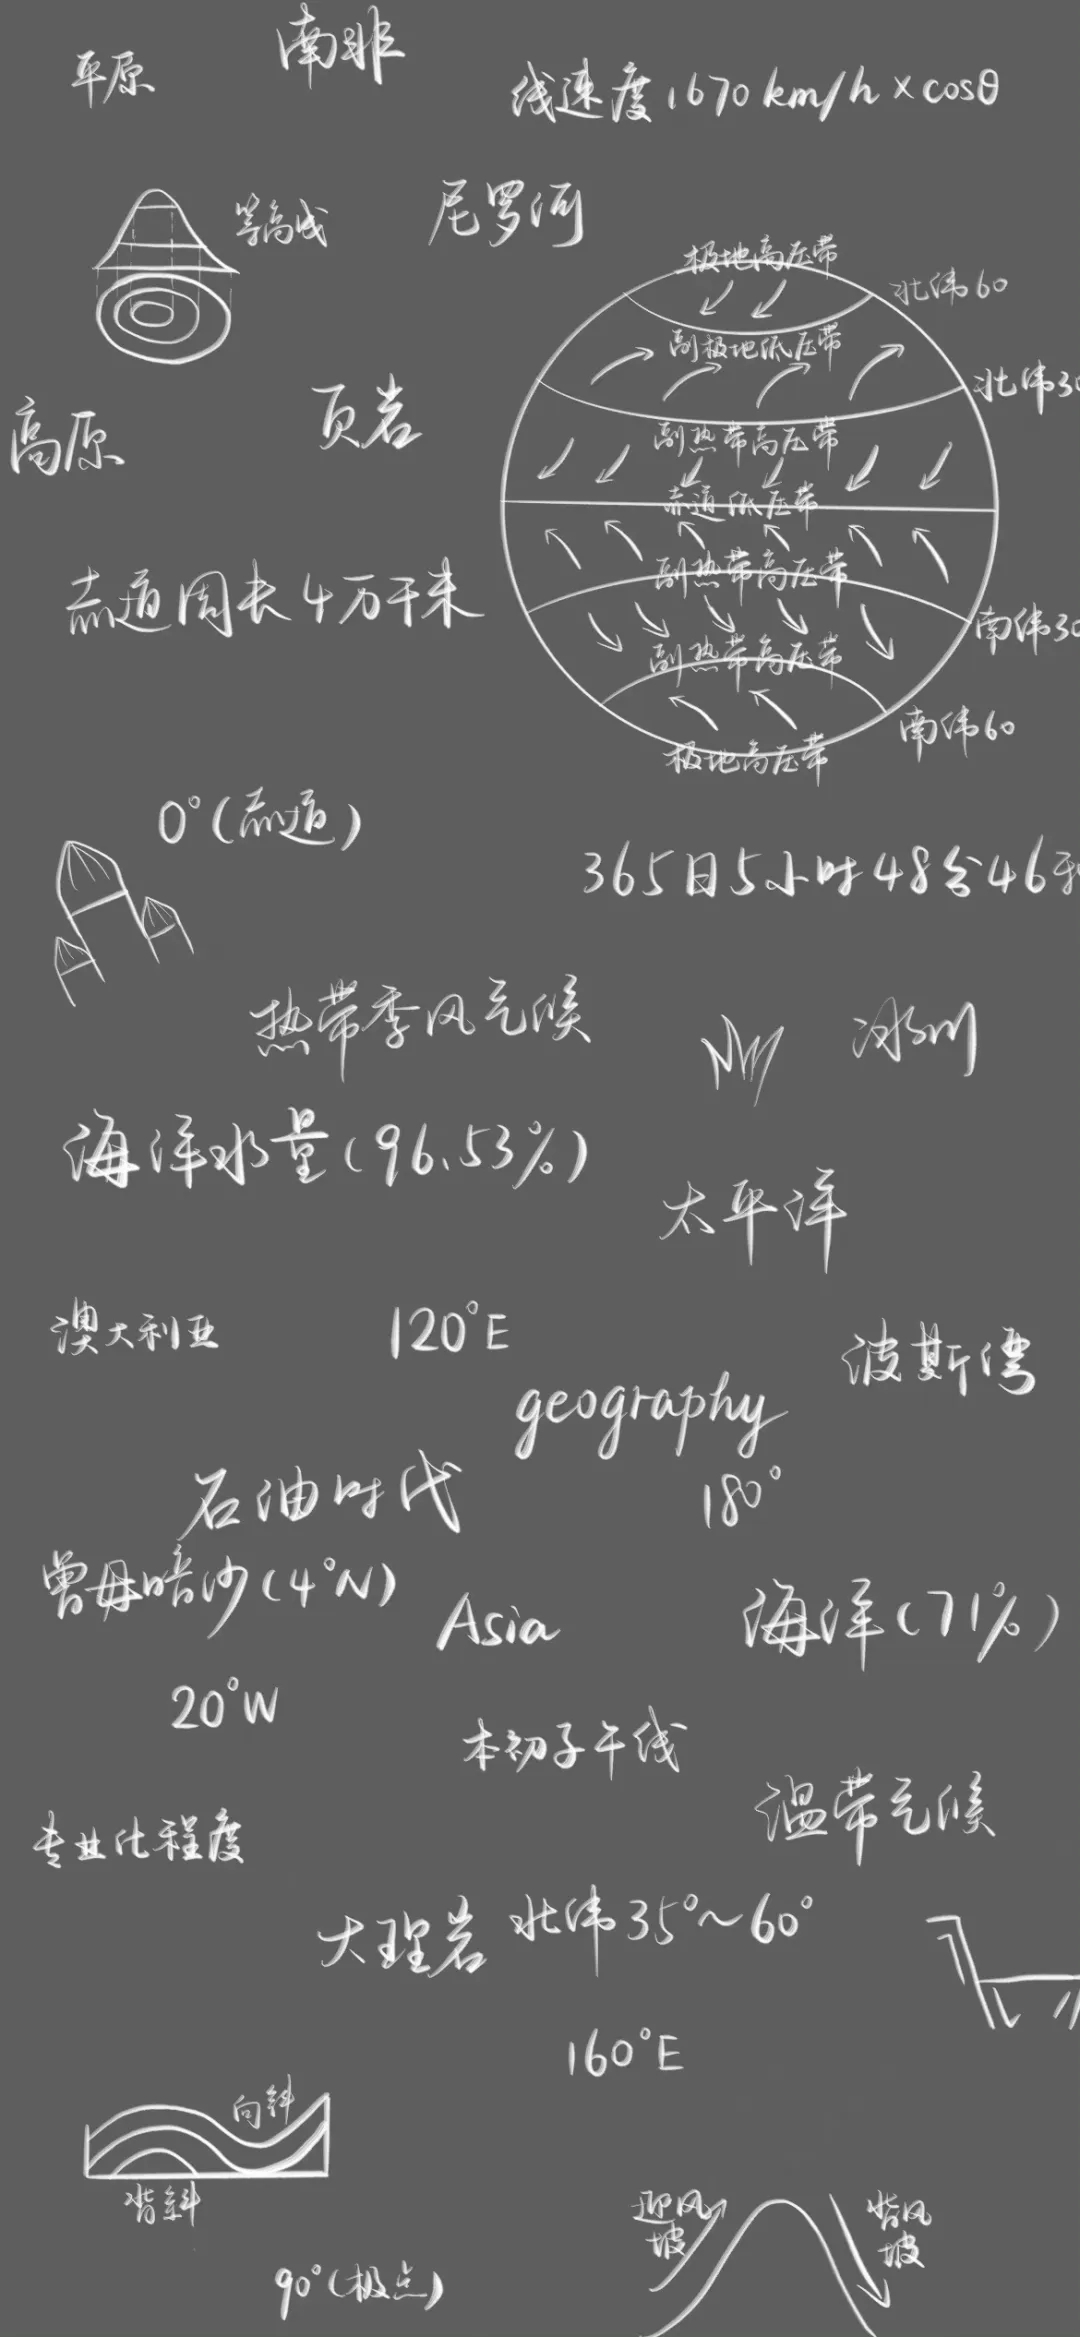 南非
平原
线速度1670km/h×cosθ
等高线
尼罗河
极地高压带
北纬60
副极地低压带
北纬30
副热带高压带
赤道低压带
副热带高压带
南纬30
副热带高压带
南纬60
极地高压带
高原
页岩
赤道周长4万千米
0°(赤道)
365日5小时48分46秒
热带季风气候
冰川
海洋水量(96.53%)
太平洋
澳大利亚
120°E
波斯湾
geography
石油时代
180°
曾母暗沙(4°N)
Asia
海洋(71%)
20°W
本初子午线
温带气候
专业化程度
大理岩
北纬35°~60°
160°E
向斜
背斜
迎风坡
背风坡
90°(极点)